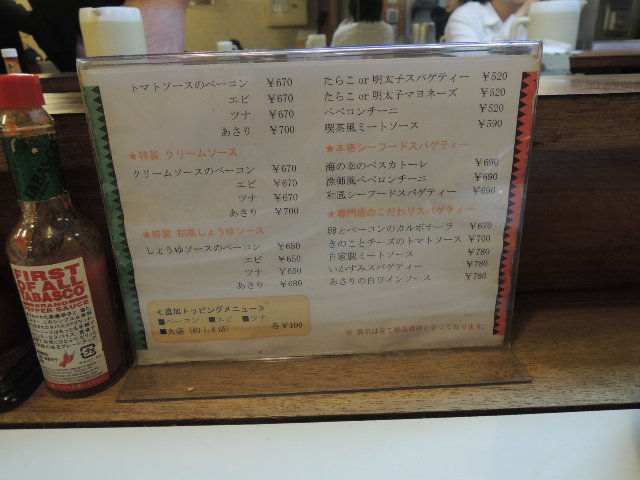 トマトソースのベーコン ¥670
エビ ¥670
ツナ ¥670
あさり ¥700
★特製 クリームソース
クリームソースのベーコン ¥670
エビ ¥670
ツナ ¥670
あさり ¥700
★特製 和風しょうゆソース
しょうゆソースのベーコン ¥650
エビ ¥650
ツナ ¥650
あさり ¥680
≪追加トッピングメニュー≫
■ベーコン ■エビ ■ツナ
■大盛 (約1.5倍) 各¥100
たらこ or 明太子スパゲティー ¥520
たらこ or 明太子マヨネーズ ¥520
ペペロンチーニ ¥520
喫茶風ミートソース ¥590
★本格シーフードスパゲティー
海の幸のペスカトーレ ¥690
漁師風ペペロンチーニ ¥690
和風シーフードスパゲティー ¥690
★専門店のこだわりスパゲティー
卵とベーコンのカルボナーラ ¥670
きのことチーズのトマトソース ¥700
自家製ミートソース ¥780
いかすみスパゲティー ¥780
あさりの白ワインソース ¥780
※ 表示は全て税込価格となっております。
TABASCO
FIRST
OF ALL
TABASCO
BRAND
PEPPER SAUCE